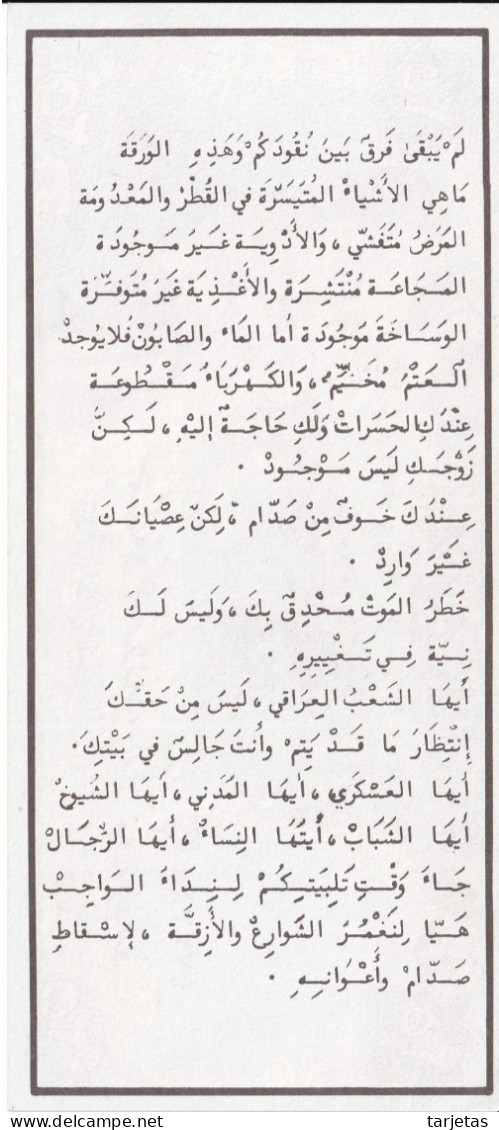 لَمْ يَبْقَىٰ فَرقٌ بَينَ نُقُودَكُمْ وَهَذِهِ الوَرَقَة
مَاهِي الأَشْيَاءْ المُتَيَسّرَة في القُطْرْ والمَعْدُومَة
المَرَضُ مُتَفَشّي، وَالأَدْوِيَة غَيرَ مَـوجُودَة
المَـجَاعَـة مُنْتَشِرَة والأَغْـذِيَة غَيرُ مُتَوفِّـرَة
الوَسَـاخَة مَوجُودَة أما المَاء والصَابُونْ فَلا يُوجدْ
العَتْمُ مُخَـيِّمٌ، وَالكَـهْرَبَاءُ مَـقْـطُوعَـة
عِنْدُكِ الحَسَرَاتْ وَلَكِ حَاجَـةٌ إليْهِ، لَـكِـنَّ
زَوْجَـكِ لَيسَ مَـوْجـُودْ .
عِـنْدُكَ خَـوفٌ مِنْ صَدّام، لَكنّ عِصْيَانَـكَ
غَـيْرَ وَارِدْ .
خَطَرُ المَوتْ مُـحْدِقٌ بِكَ، وَلَيسَ لَـكَ
نِـيّة فِـي تَـغْـيِيرِهِ .
أيهَا الشَعْبُ العِرَاقي، لَيسَ مِنْ حَقـّكَ
إنْتِظَارَ مَا قَـدْ يَتِمْ وأنتَ جَالِسٌ في بَيْتِكَ.
أيهَا العَسْكَرَي، أيهَا المَدَنِي، أيهَا الشيُوخْ
أيهَا الشَبَابْ، أيتُهَا النِسَاءْ، أيهَا الرّجَـالْ
جَـاءَ وَقْـتِ تَلبِيَتـِكُـمْ لِـنِـدَاءَ الـوَاجِـبْ
هَـيّا لِنَغْمُـرَ الشَوارِعْ والأزِقَّـة، لإسْـقَاطِ
صَـدّامْ وأعْـوَانِـهِ .
www.delcampe.net
tarjetas